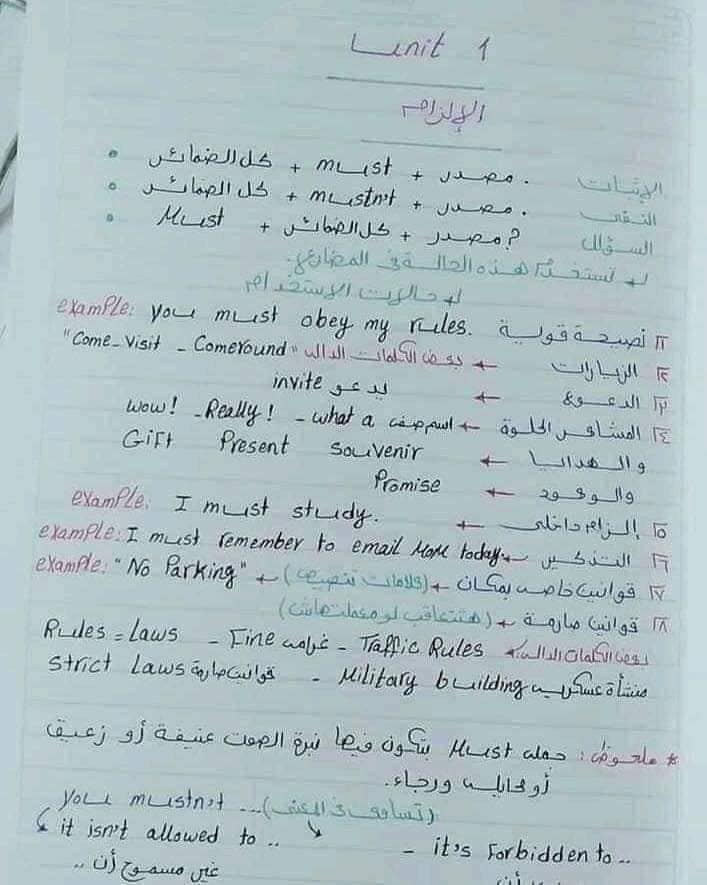 Unit 1
الإلزام
الإثبات • كل الضمائر + must + مصدر .
النفى • كل الضمائر + mustn't + مصدر .
السؤال • Must + كل الضمائر + مصدر ?
تستخدم هذه الحالة فى المضارع.
حالات الإستخدام
١ نصيحة قوية example: you must obey my rules.
٢ الزيارات ← بعض الكلمات الدالة "Come - visit - Comeround"
٣ الدعوة ← يدعو invite
٤ المشاعر الحلوة ← اسم صفة wow! - Really! - what a
والهدايا ← Gift Present souvenir
والوعود ← Promise
٥ إلزام داخلى ← example: I must study.
٦ التذكير ← example: I must remember to email Mom today
٧ قوانين خاصة بمكان ← (علامات تنصيص) ← example: "No Parking"
٨ قوانين صارمة ← (هتتعاقب لو معملتهاش)
بعض الكلمات الدالة: Rules = Laws - Fine غرامة - Traffic Rules
strict Laws قوانين صارمة - Military building منشأة عسكرية
* ملحوظة : جملة Must بتكون فيها نبرة الصوت عنيفة أو زعيق
أو محايلة ورجاء.
you mustn't ... (تساوى فى المعنى)
it isn't allowed to .. - it's Forbidden to ..
غير مسموح أن ..